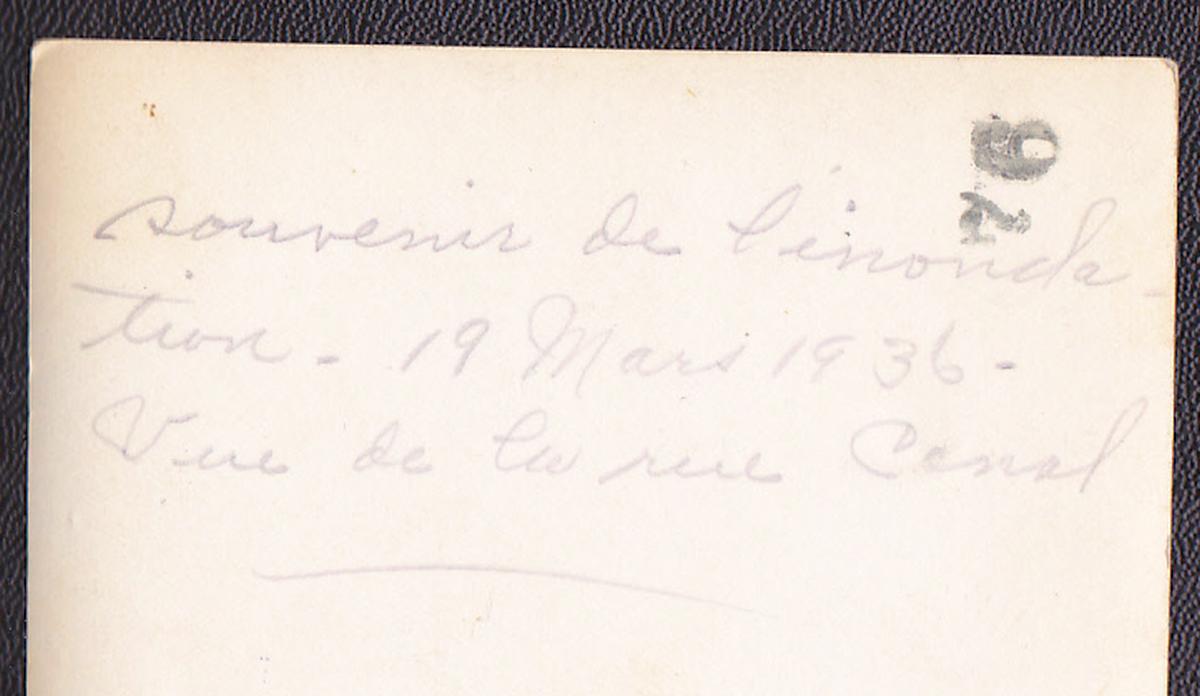 76
souvenir de l'inonda-
tion - 19 Mars 1936 -
Vue de la rue Canal